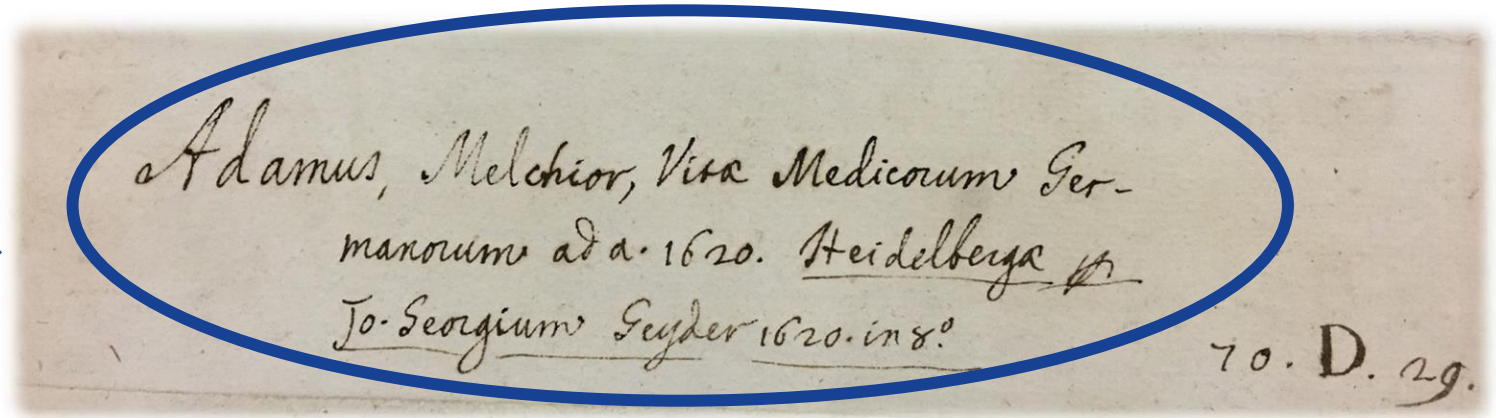 Adamus, Melchior, Vitæ Medicorum Ger-
manorum ad a. 1620. Heidelbergæ
Jo. Georgium Geyder 1620. in 8.º
70. D. 29.